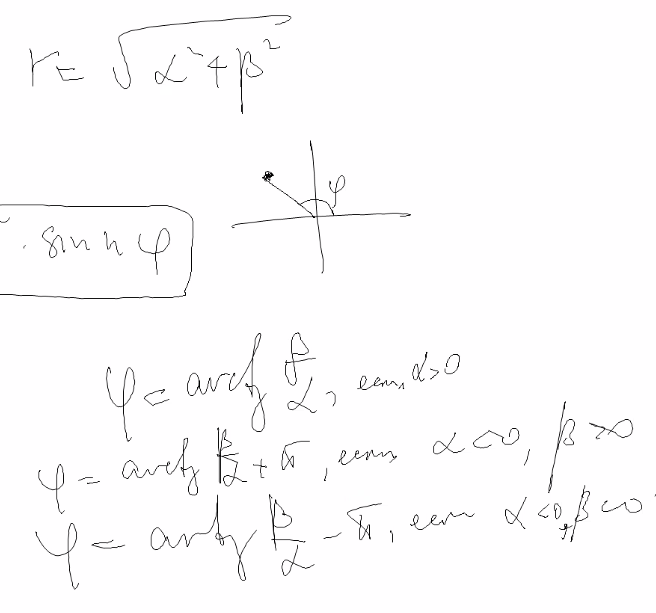 r = √α²+β²
φ
· sin n φ
φ = arctg β/α, если α>0
φ = arctg β/α + π, если α<0, β>0
φ = arctg β/α - π, если α<0, β<0